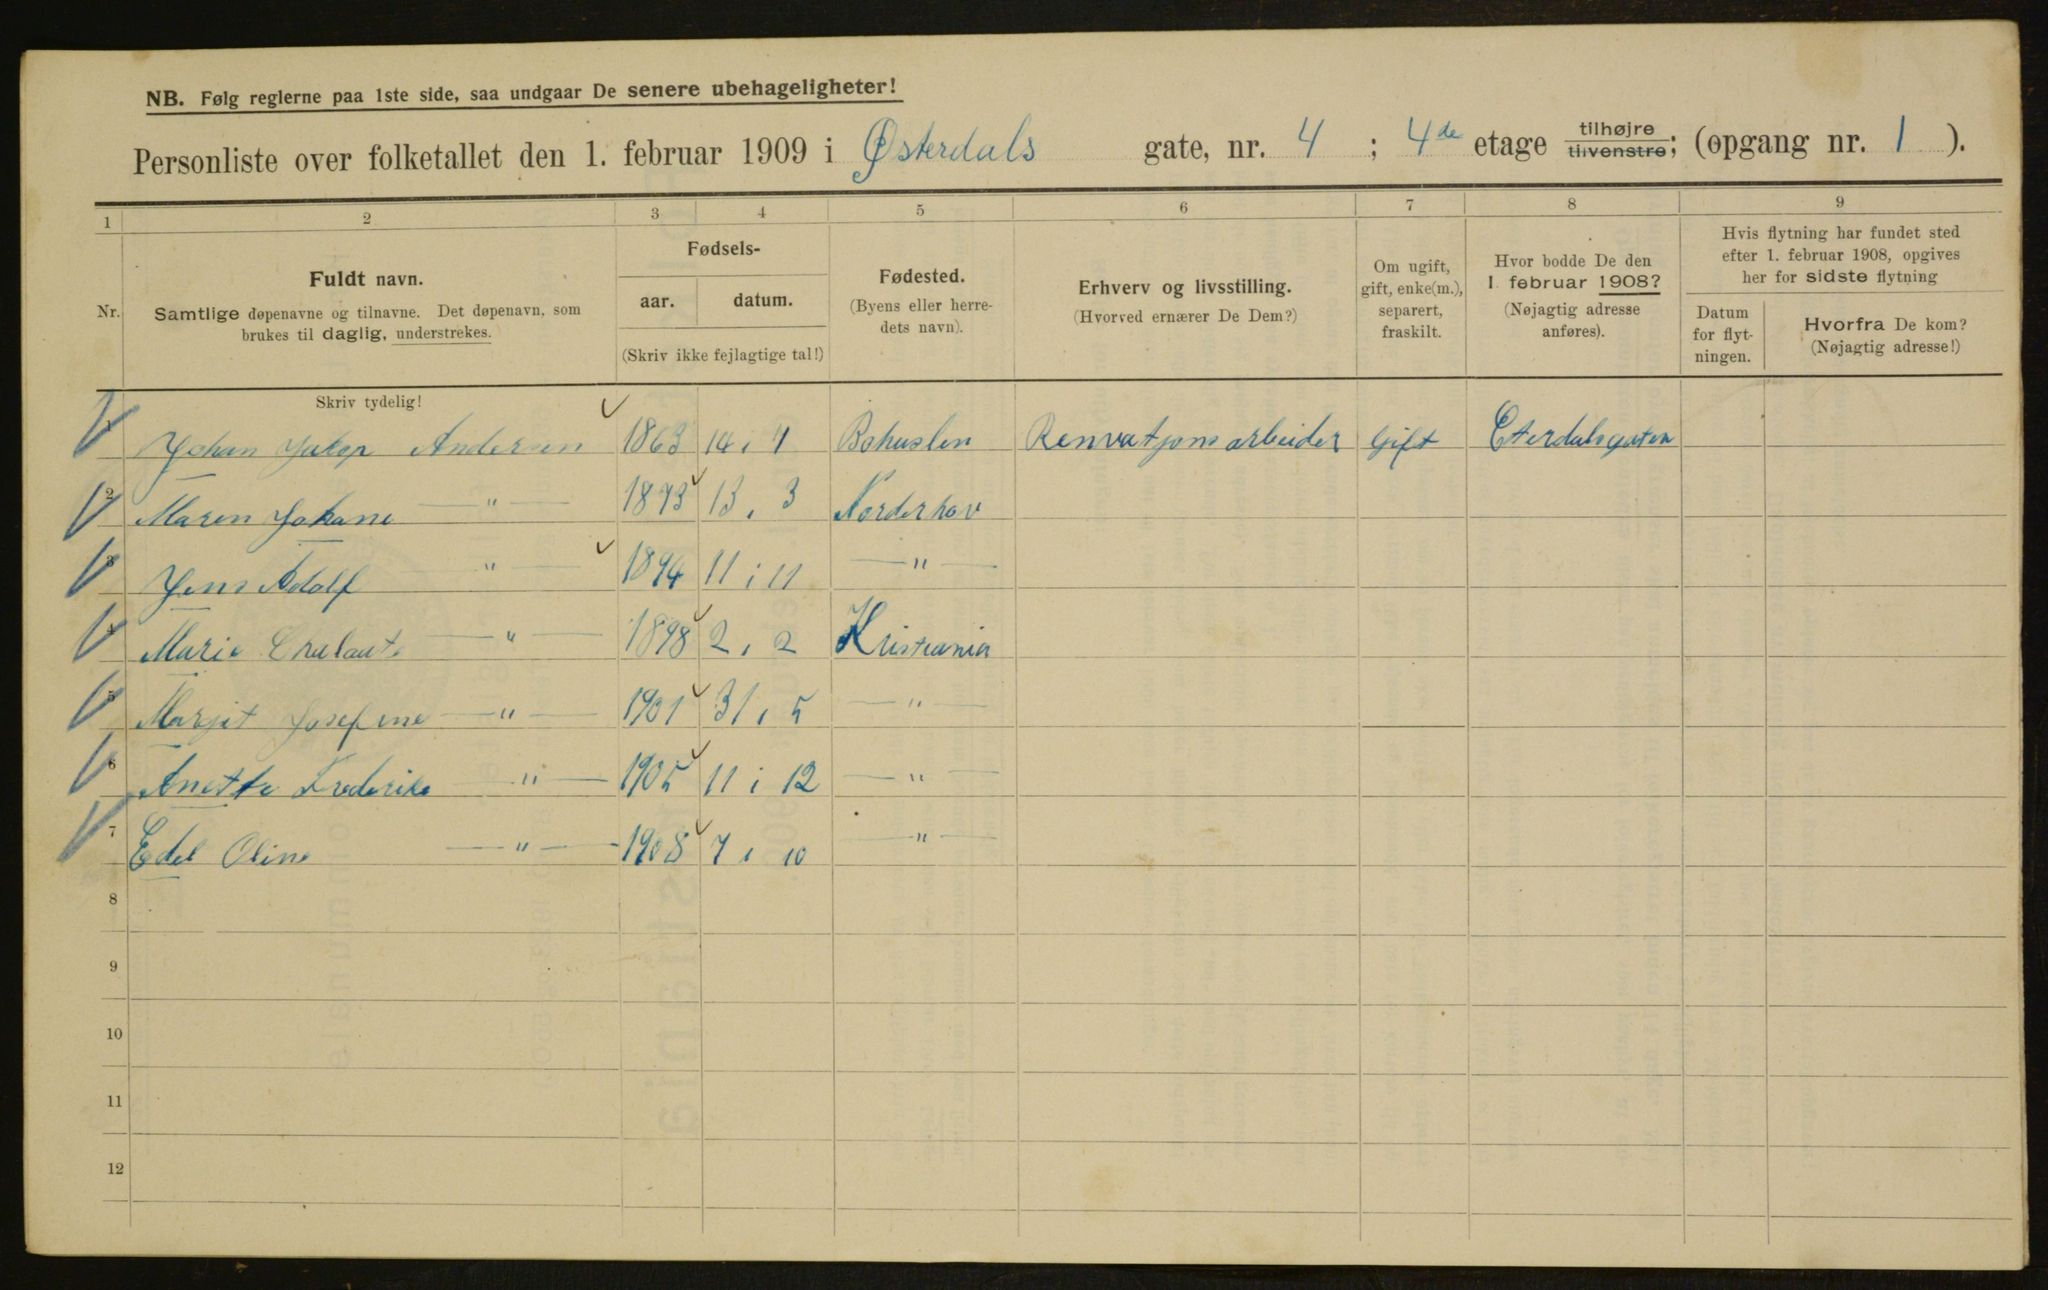 NB. Følg reglerne paa 1ste side, saa undgaar De senere ubehageligheter!
Personliste over folketallet den 1. februar 1909 i Østerdals gate, nr. 4 ; 4de etage tilhøjre tilvenstre; (opgang nr. 1 ).
1 2 3 4 5 6 7 8 9
Nr.
Fuldt navn.
Samtlige døpenavne og tilnavne. Det døpenavn, som
brukes til daglig, understrekes.
Fødsels-
aar. datum.
(Skriv ikke fejlagtige tal!)
Fødested.
(Byens eller herre-
dets navn).
Erhverv og livsstilling.
(Hvorved ernærer De Dem?)
Om ugift,
gift, enke(m.),
separert,
fraskilt.
Hvor bodde De den
1. februar 1908?
(Nøjagtig adresse
anføres).
Hvis flytning har fundet sted
efter 1. februar 1908, opgives
her for sidste flytning
Datum
for flyt-
ningen.
Hvorfra De kom?
(Nøjagtig adresse!)
Skriv tydelig!
1 Johan Jakop Andersen 1863 14 i 4 Bohuslen Renvatjons arbeider Gift Eterdalsgaten
2 Maren Johane — " — 1873 13 i 3 Norderhov
3 Jens Adolf — " — 1894 11 i 11 — " —
4 Marie — " — 1898 2 i 2 Kristiania
5 Margit Josefine — " — 1901 31 i 5 — " —
6 Anette Frederike — " — 1905 11 i 12 — " —
7 Edel Oline — " — 1908 7 i 10 — " —
8
9
10
11
12